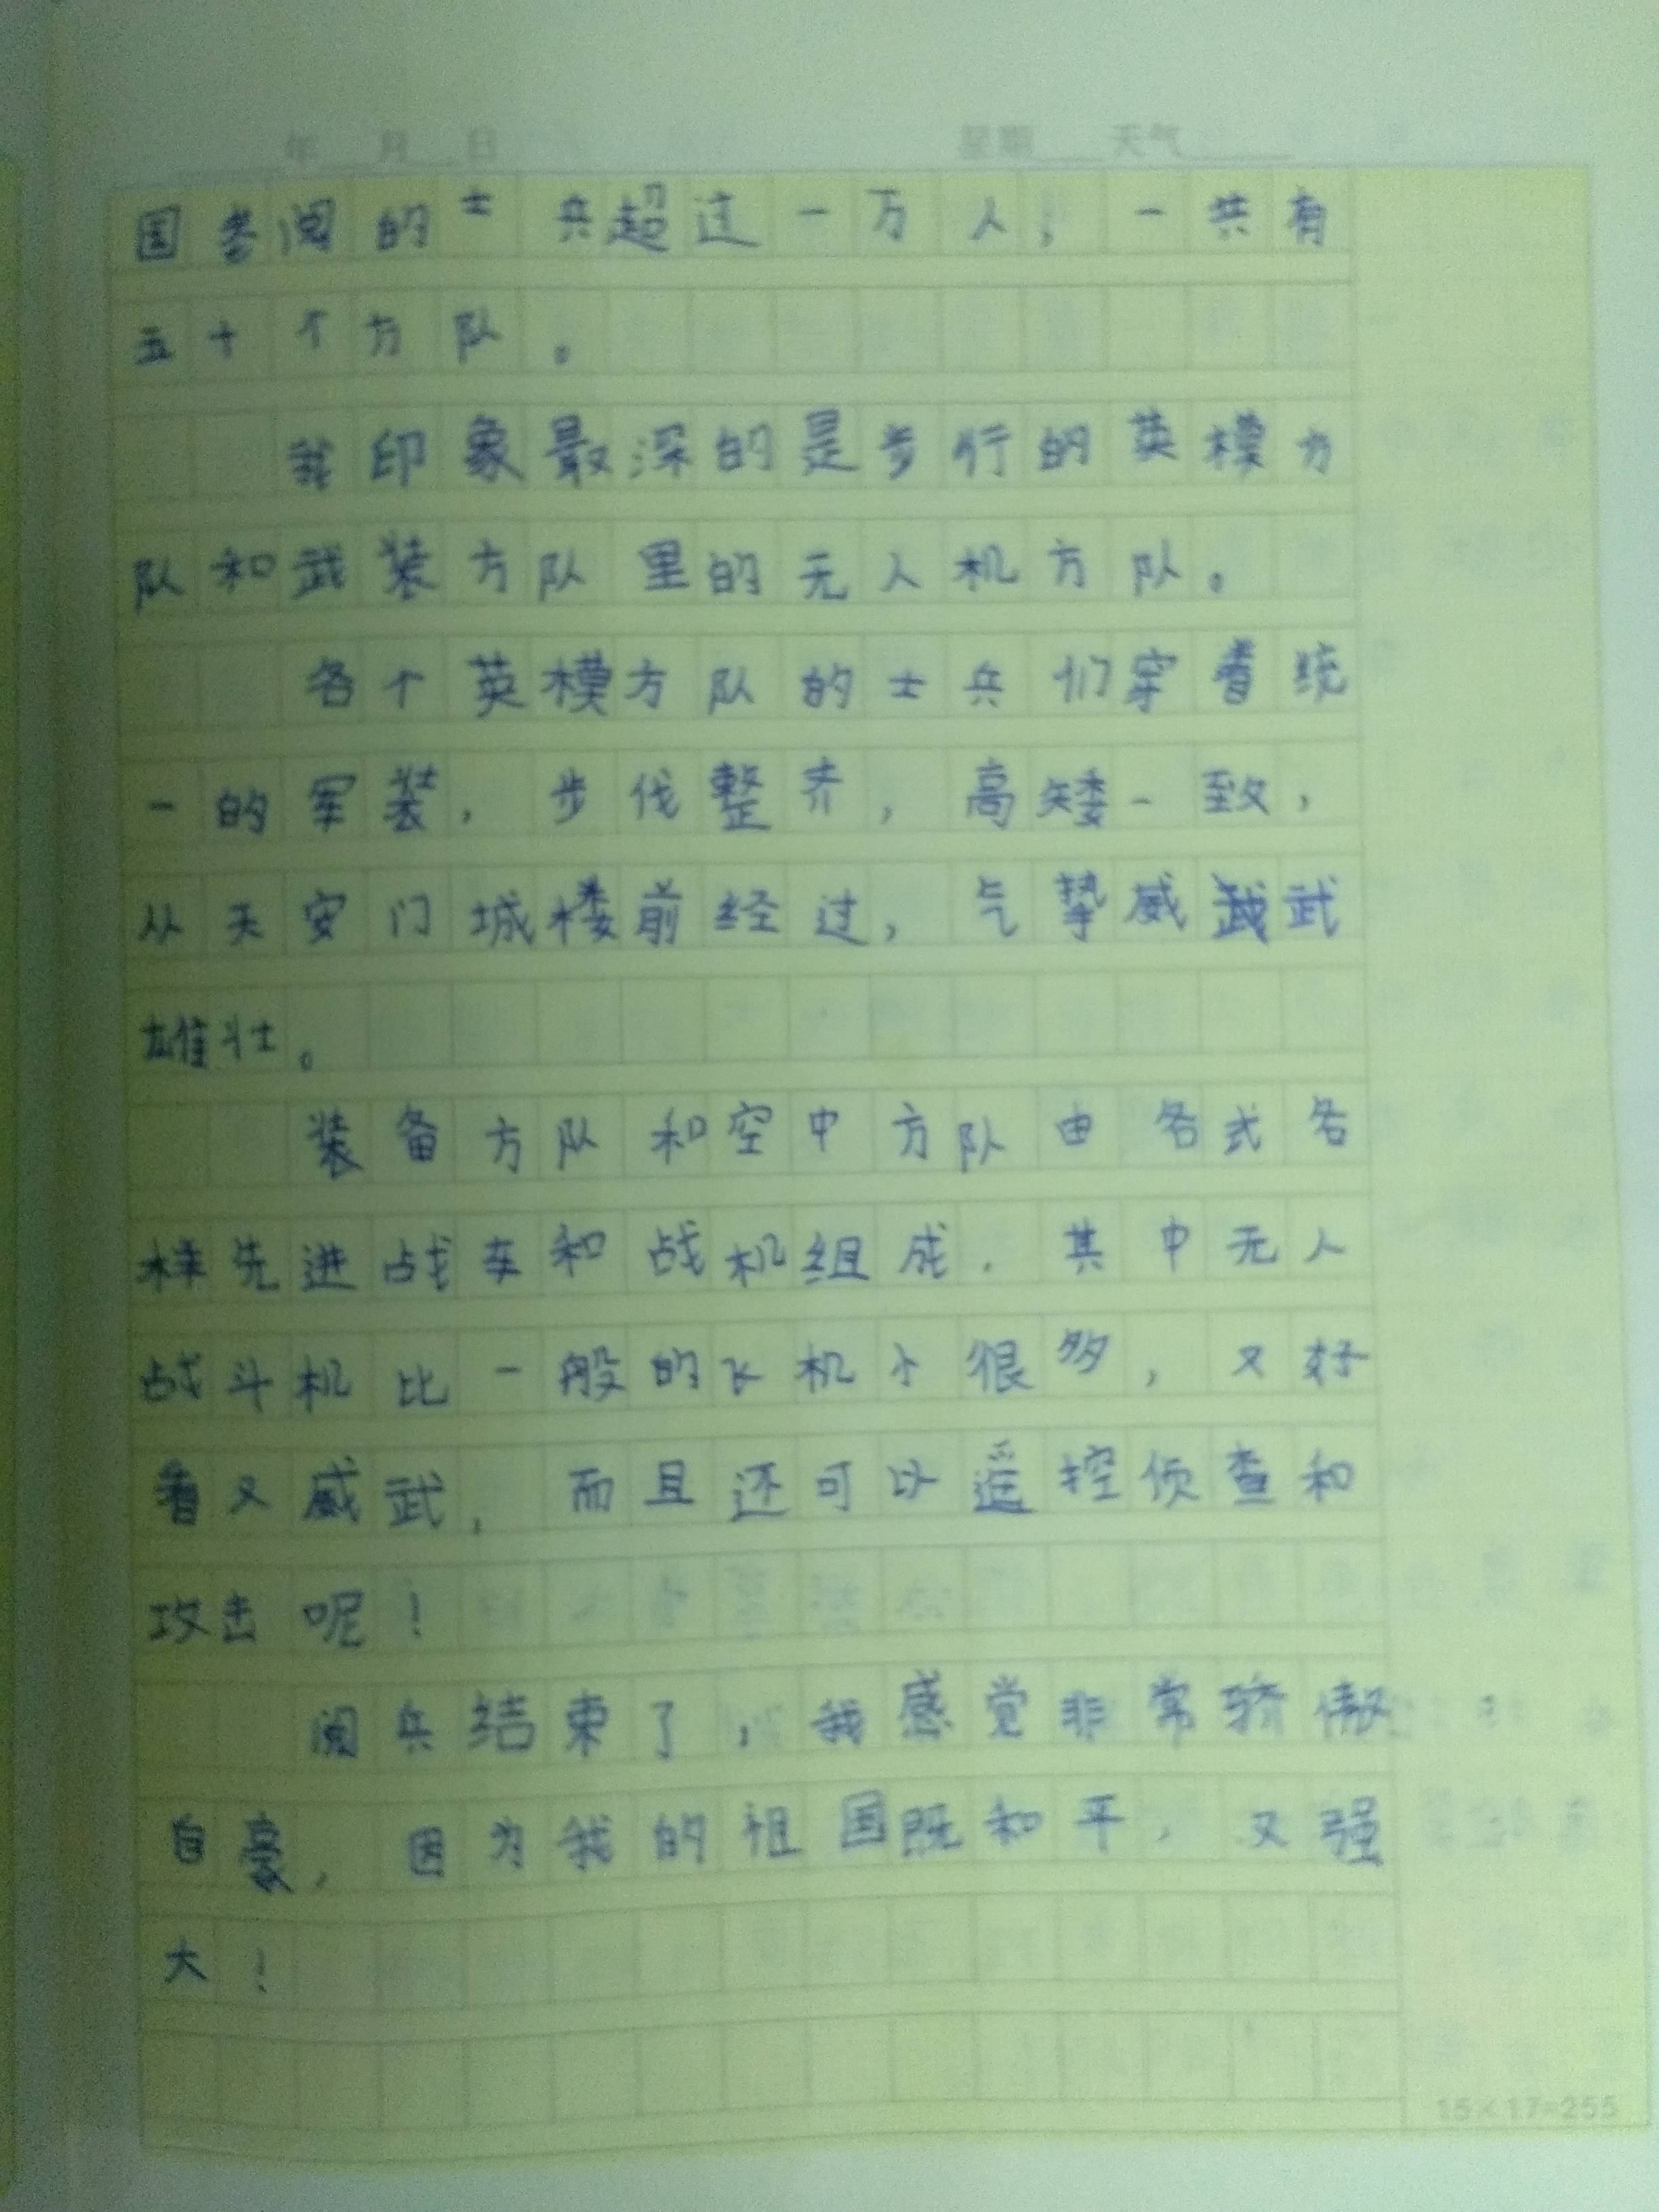 年 月 日 星期 天气
国参阅的士兵超过一万人；一共有
五十个方队。
我印象最深的是步行的英模方
队和武装方队里的无人机方队。
各个英模方队的士兵们穿着统
一的军装，步伐整齐，高矮一致，
从天安门城楼前经过，气挚威武
雄壮。
装备方队和空中方队由各式各
样先进战车和战机组成．其中无人
战斗机比一般的飞机小很多，又好
看又威武，而且还可以遥控侦查和
攻击呢！
阅兵结束了，我感觉非常骄傲
自豪，因为我的祖国既和平，又强
大！
15×17=255